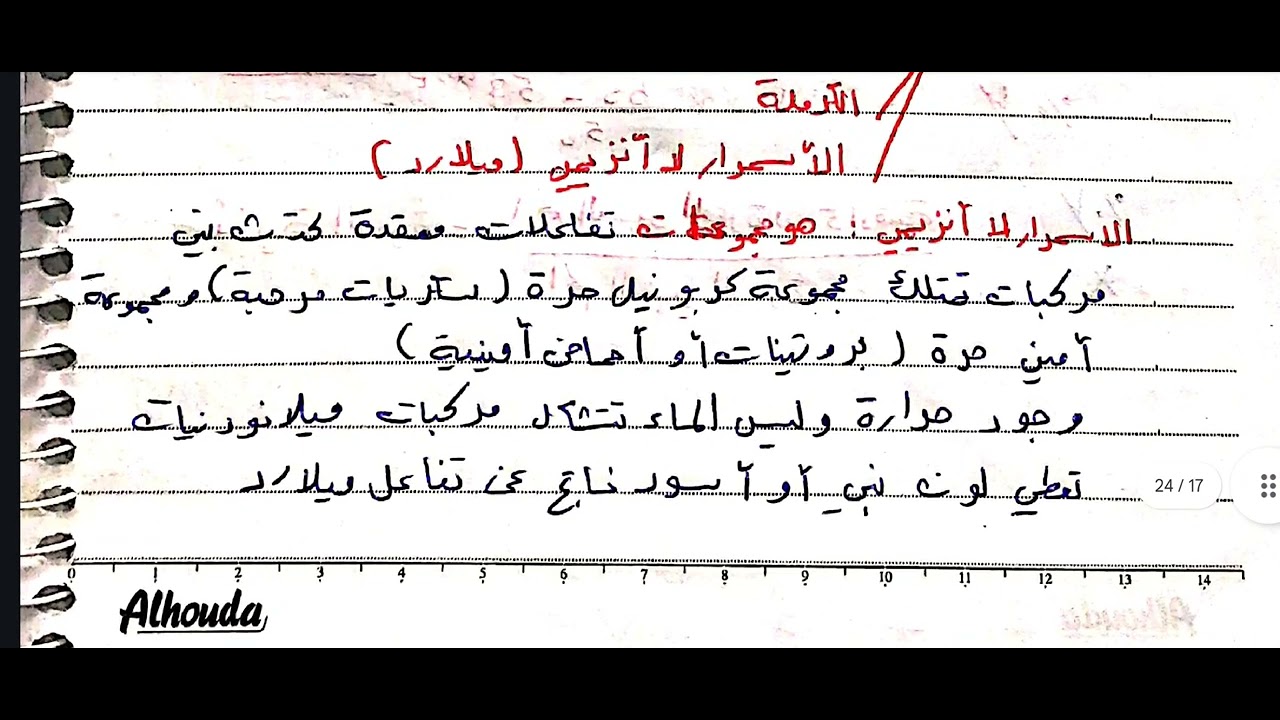 الكرملة
الأسمرار لا أنزيمي (ميلارد)
الأسمرار لا أنزيمي: هو مجموعات تفاعلات معقدة تحدث بين
مركبات تمتلك مجموعة كربونيل حرة (سكريات مرجعة) ومجموعة
أمين حرة (بروتينات أو أحماض أمينية)
وجود حرارة وليس الماء تتشكل مركبات ميلانودنيات
تعطي لون بني أو أسود ناتج عن تفاعل ميلارد
24 / 17
0 1 2 3 4 5 6 7 8 9 10 11 12 13 14
Alhouda